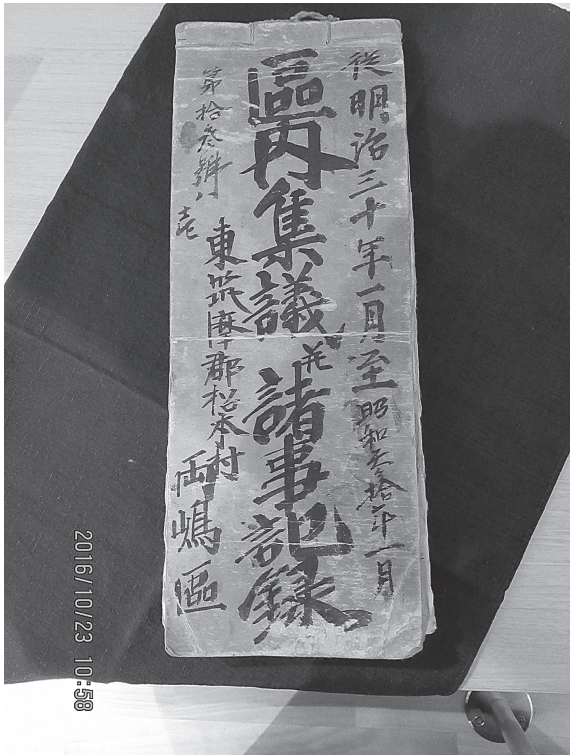 從明治三十年一月至昭和参拾年一月
區内集議並諸事記録
東筑摩郡松本村
両嶋區
第拾参號ノ壱
2016/10/23 10:58